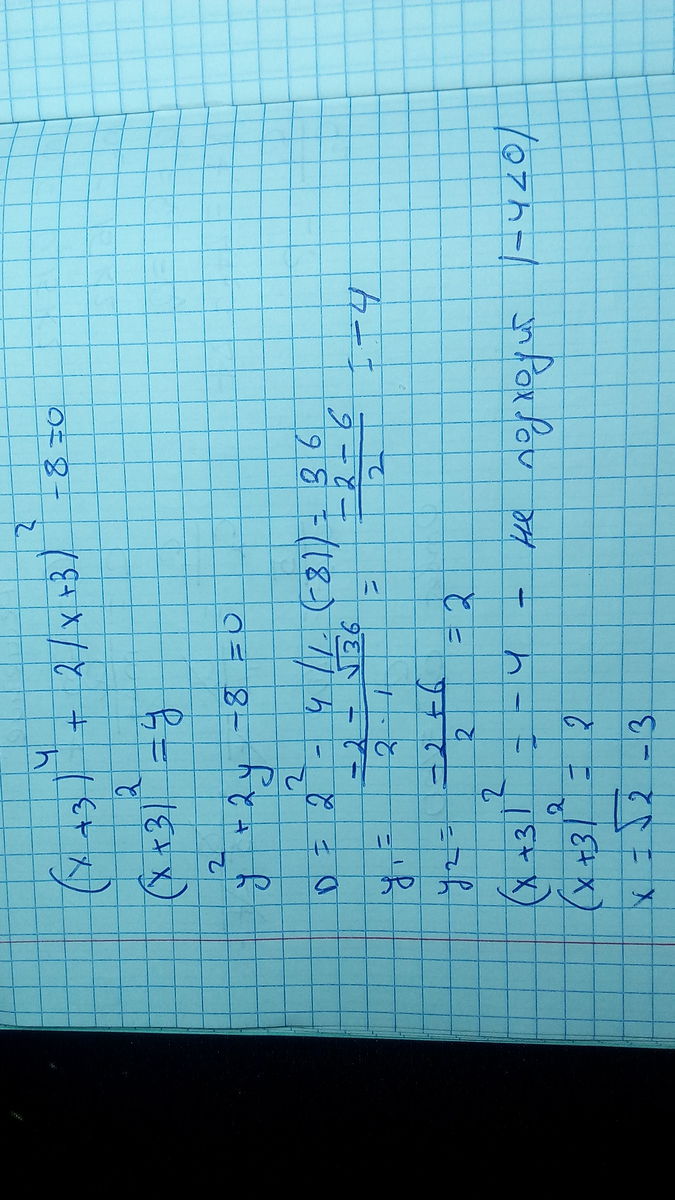 (x+3)⁴ + 2(x+3)² -8=0
(x+3)² = y
y² + 2y -8 = 0
D = 2² - 4(1·(-8)) = 36
y₁ = (-2-√36)/(2·1) = (-2-6)/2 = -4
y₂ = (-2+6)/2 = 2
(x+3)² = -4 - не подходит (-4<0)
(x+3)² = 2
x = √2 -3